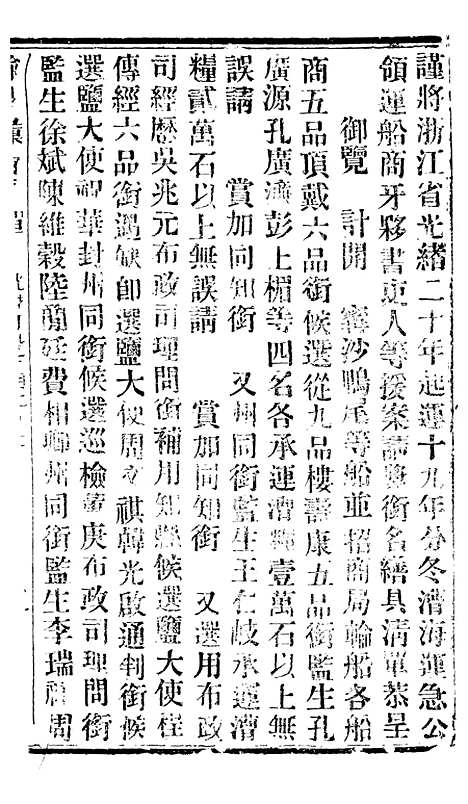 謹將浙江省光緒二十年起運十九年分冬漕海運急公
領運船商牙夥書吏人等援案請獎銜名繕具清單恭呈
御覽　計開　寗沙鴨尾等船並招商局輪船各船
商五品頂戴六品銜候選從九品樓壽康五品銜監生孔
廣源孔廣濟彭上楣等四名各承運漕糧壹萬石以上無
誤請　賞加同知銜　又州同銜監生王仁岐承運漕
糧貳萬石以上無誤請　賞加同知銜　又選用布政
司經歷吳兆元布政司理問銜補用知縣候選鹽大使程
傳經六品銜遇缺即選鹽大使周文祺韓光啟通判銜候
選鹽大使程華封州同銜候選巡檢董庚布政司理問銜
監生徐斌陳維穀陸蓢廷費相聯州同銜監生李瑞周